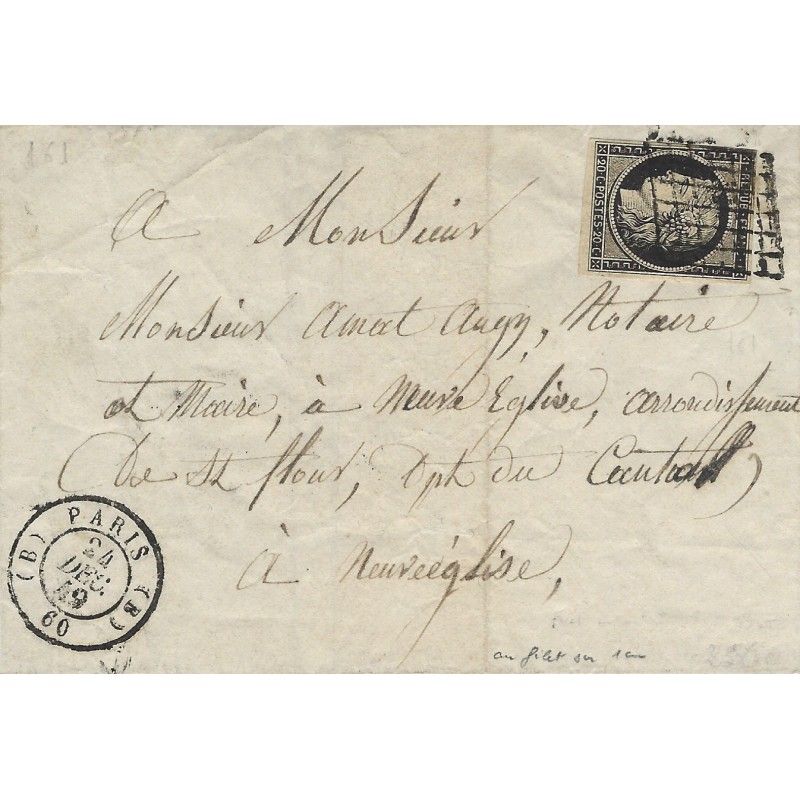 161
REPUB. FRANC.
20.c POSTES 20.c
A Monsieur
Monsieur Amat Augy, Notaire
et Maire, à Neuve Eglise, arrondissement
De St flour, Dpt du Cantal,
à Neuveéglise,
(B) PARIS (B)
24
DEC.
49
60
au filet sur 1 cm